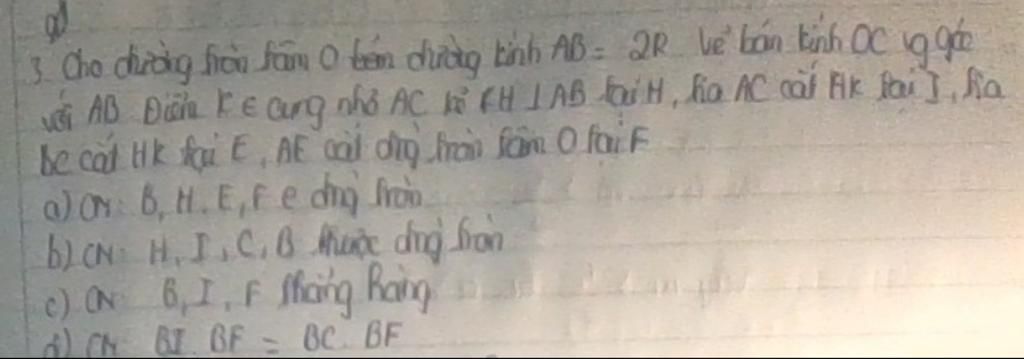 a)
3. Cho đường tròn tâm O đường kính AB = 2R Vẽ bán kính OC vg góc
với AB Điểm K ∈ cung nhỏ AC kẻ KH ⊥ AB tại H, tia AC cắt HK tại I, tia
BC cắt HK tại E, AE cắt đng tròn tâm O tại F
a) CM: B, H, E, F ∈ đng tròn
b) CM: H, I, C, B thuộc đng tròn
c) CM: B, I, F thẳng hàng
d) CM BI. BF = BC. BF